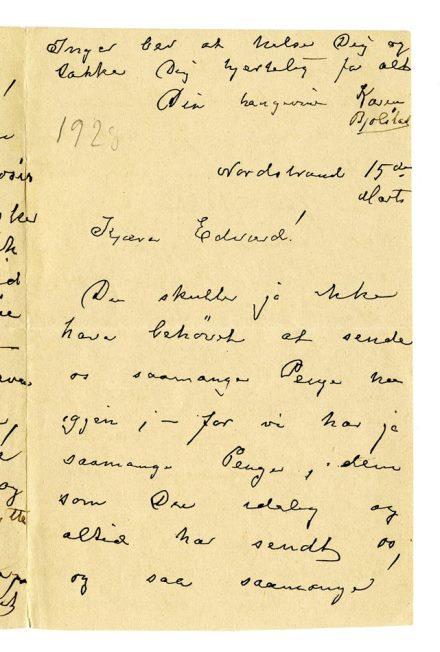 Inger ber at helse Dig og
takke Dig hjertelig for alt
Din hengivne Karen
Bjølstad
1928
Nordstrand 15de
Marts
Kjære Edvard!
Du skulle jo ikke
have behövet at sende
os saamange Penge nu
igjen, – for vi har jo
saamange Penge, dem
som Du idelig og
altid har sendt os,
og saa saamange